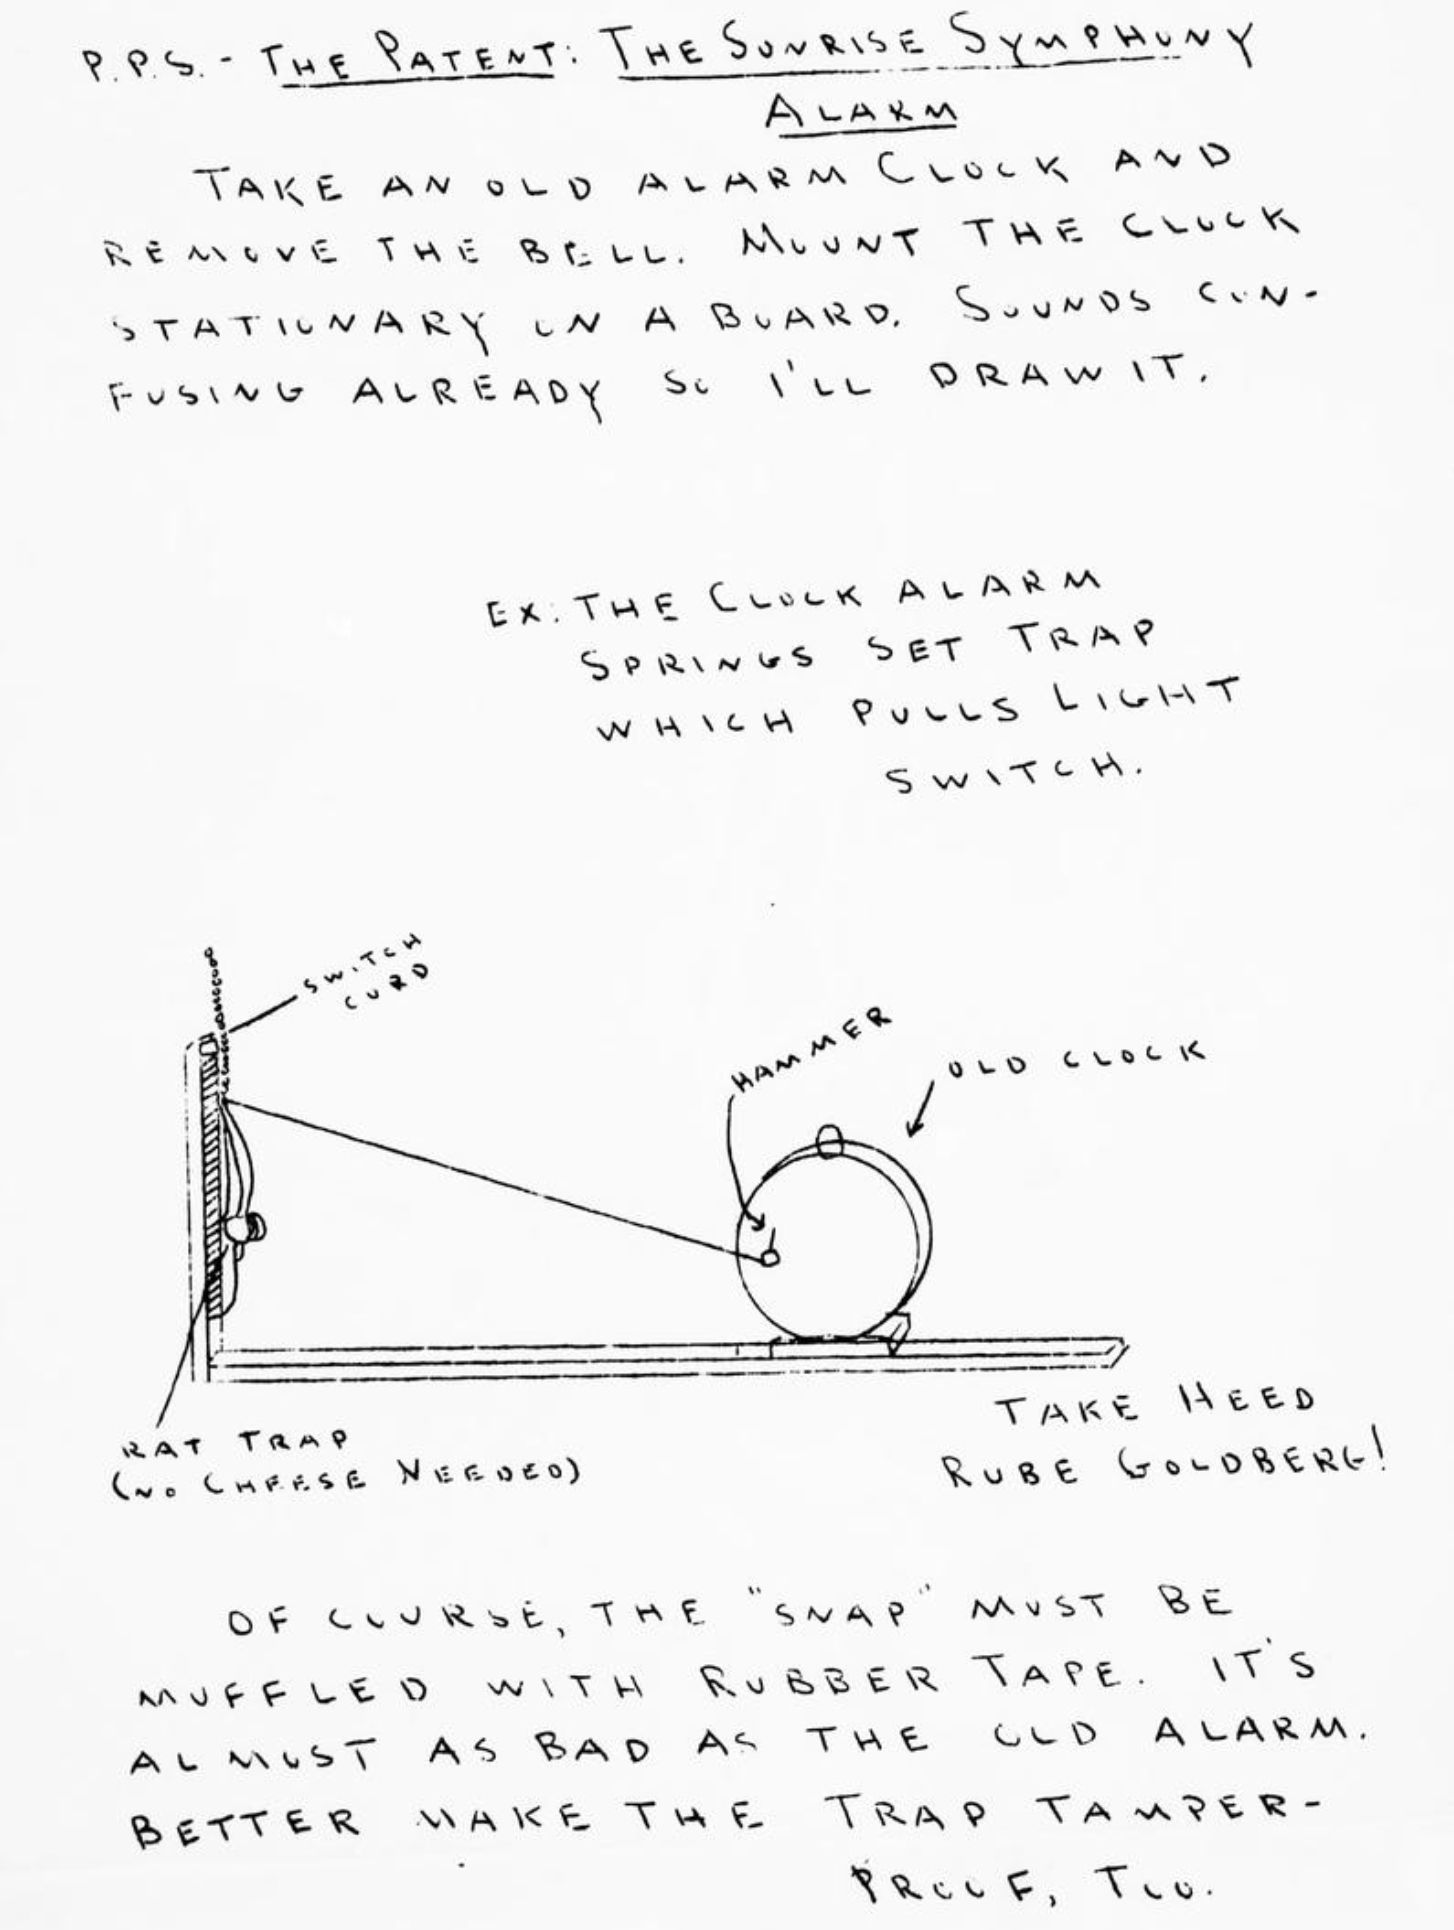 P.P.S. - THE PATENT: THE SUNRISE SYMPHONY
ALARM
TAKE AN OLD ALARM CLOCK AND
REMOVE THE BELL. MOUNT THE CLOCK
STATIONARY ON A BOARD. SOUNDS CON-
FUSING ALREADY SO I'LL DRAW IT.
EX: THE CLOCK ALARM
SPRINGS SET TRAP
WHICH PULLS LIGHT
SWITCH.
SWITCH
CORD
HAMMER
OLD CLOCK
RAT TRAP
(NO CHEESE NEEDED)
TAKE HEED
RUBE GOLDBERG!
OF COURSE, THE "SNAP" MUST BE
MUFFLED WITH RUBBER TAPE. IT'S
ALMOST AS BAD AS THE OLD ALARM.
BETTER MAKE THE TRAP TAMPER-
PROOF, TOO.